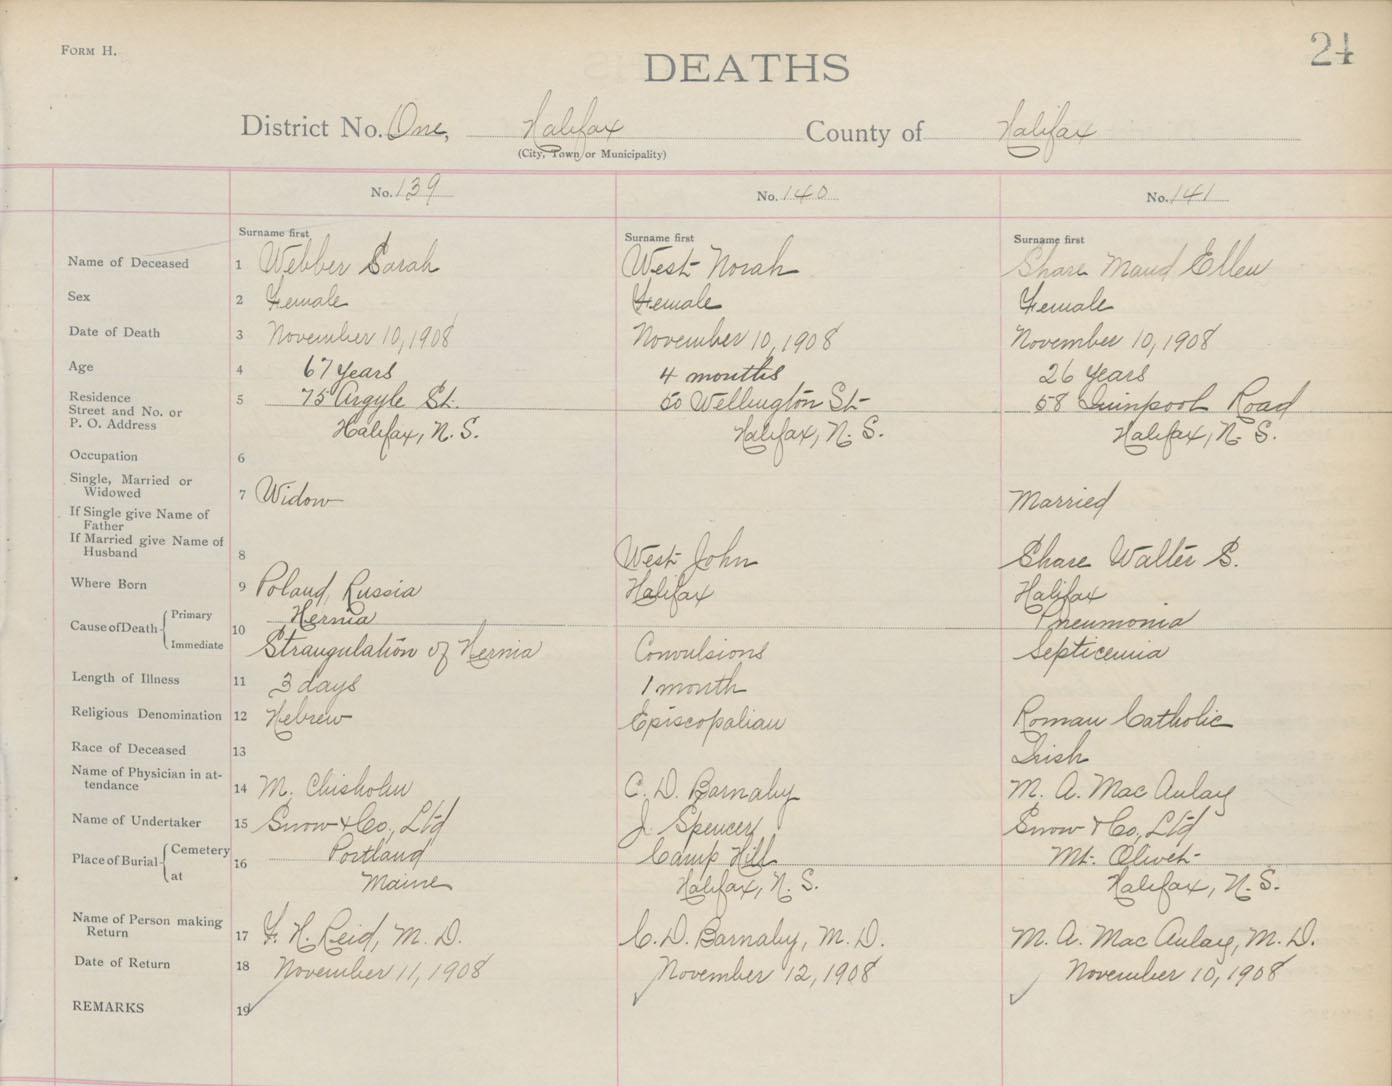 FORM H.
24
DEATHS
District No. One, Halifax County of Halifax
(City, Town or Municipality)
No. 139 No. 140 No. 141
Surname first Surname first Surname first
Name of Deceased 1 Webber Sarah West Norah Share Maud Ellen
Sex 2 Female Female Female
Date of Death 3 November 10, 1908 November 10, 1908 November 10, 1908
Age 4 67 years 4 months 26 years
Residence 5 75 Argyle St. 50 Wellington St 58 Quinpool Road
Street and No. or
P. O. Address Halifax, N. S. Halifax, N. S. Halifax, N. S.
Occupation 6
Single, Married or
Widowed 7 Widow Married
If Single give Name of
Father
If Married give Name of
Husband 8 West John Share Walter S.
Where Born 9 Poland, Russia Halifax Halifax
Cause of Death Primary 10 Hernia Pneumonia
Immediate Strangulation of Hernia Convulsions Septicemia
Length of Illness 11 3 days 1 month
Religious Denomination 12 Hebrew Episcopalian Roman Catholic
Race of Deceased 13 Irish
Name of Physician in at-
tendance 14 M. Chisholm C. D. Barnaby M. A. MacAulay
Name of Undertaker 15 Snow & Co., Ltd J. Spencer Snow & Co., Ltd
Place of Burial Cemetery 16 Portland Camp Hill Mt. Olivet
at Maine Halifax, N. S. Halifax, N. S.
Name of Person making
Return 17 F. H. Reid, M. D. C. D. Barnaby, M. D. M. A. MacAulay, M. D.
Date of Return 18 November 11, 1908 November 12, 1908 November 10, 1908
REMARKS 19